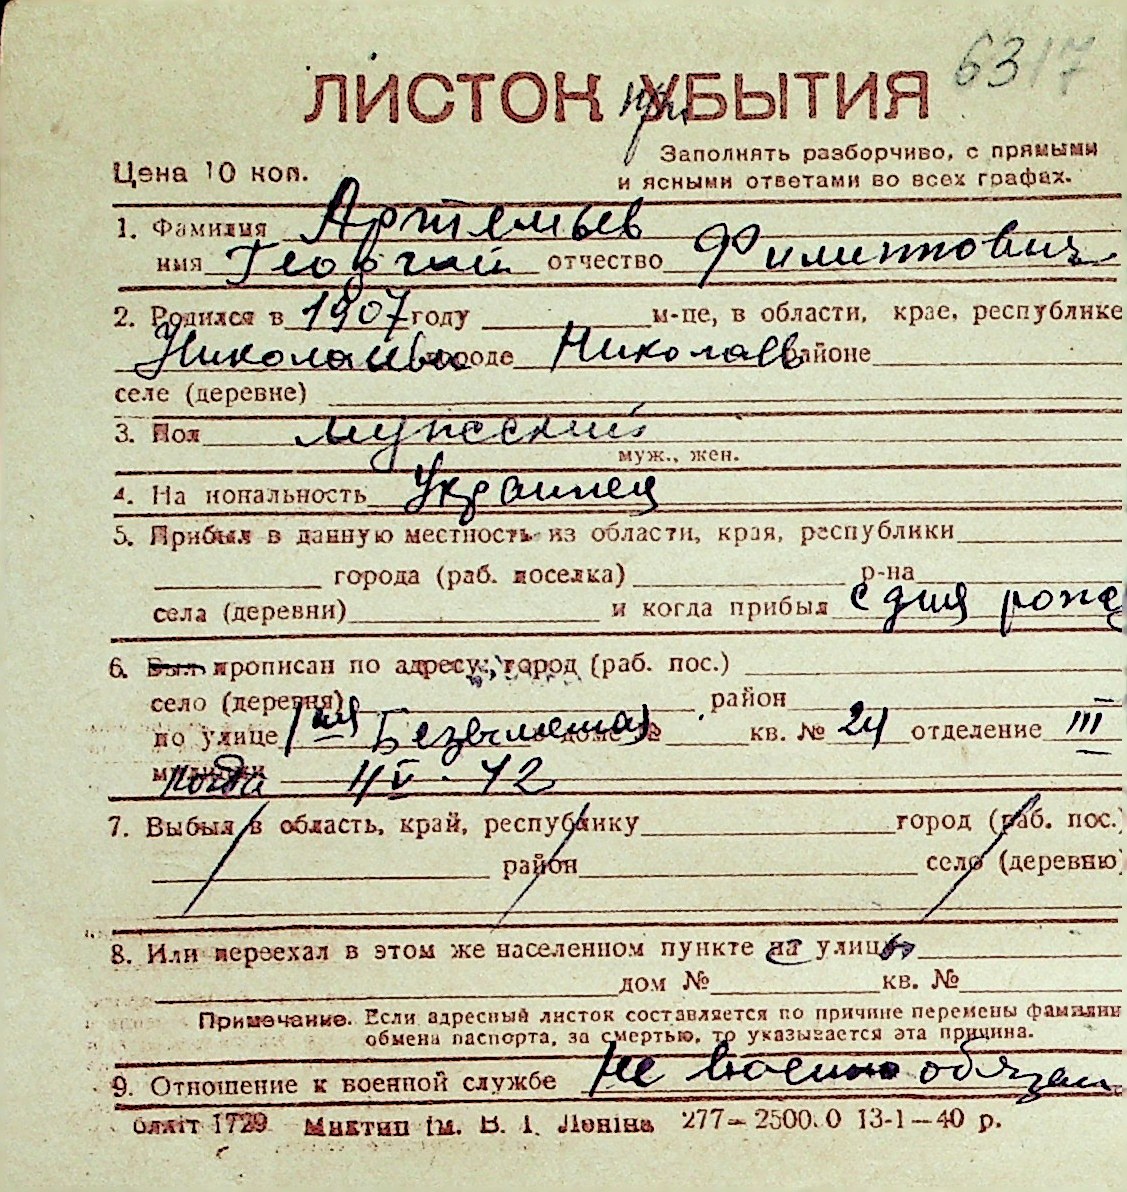 6317
ЛИСТОК при УБЫТИЯ
Цена 10 коп.
Заполнять разборчиво, с прямыми
и ясными ответами во всех графах.
1. Фамилия Артемьев
имя Георгий отчество Филиппович
2. Родился в 1907 году м-це, в области, крае, республике
Николаевск городе Николаев районе
селе (деревне)
3. Пол мужской
муж., жен.
4. На иональность Украинец
5. Прибыл в данную местность из области, края, республики
города (раб. поселка) р-на
села (деревни) и когда прибыл с дня рожд
6. Был прописан по адресу: город (раб. пос.)
село (деревня) район
по улице 1ая Безыменная дом № кв. № 24 отделение III
милиции когда 4/V-42
7. Выбыл в область, край, республику город (раб. пос.)
район село (деревню)
8. Или переехал в этом же населенном пункте на улицу
дом № кв. №
Примечание. Если адресный листок составляется по причине перемены фамилии
обмена паспорта, за смертью, то указывается эта причина.
9. Отношение к военной службе Не военно обязан
Обліт 1729 Миктип ім. В. І. Леніна 277—2500.0 13-1—40 р.